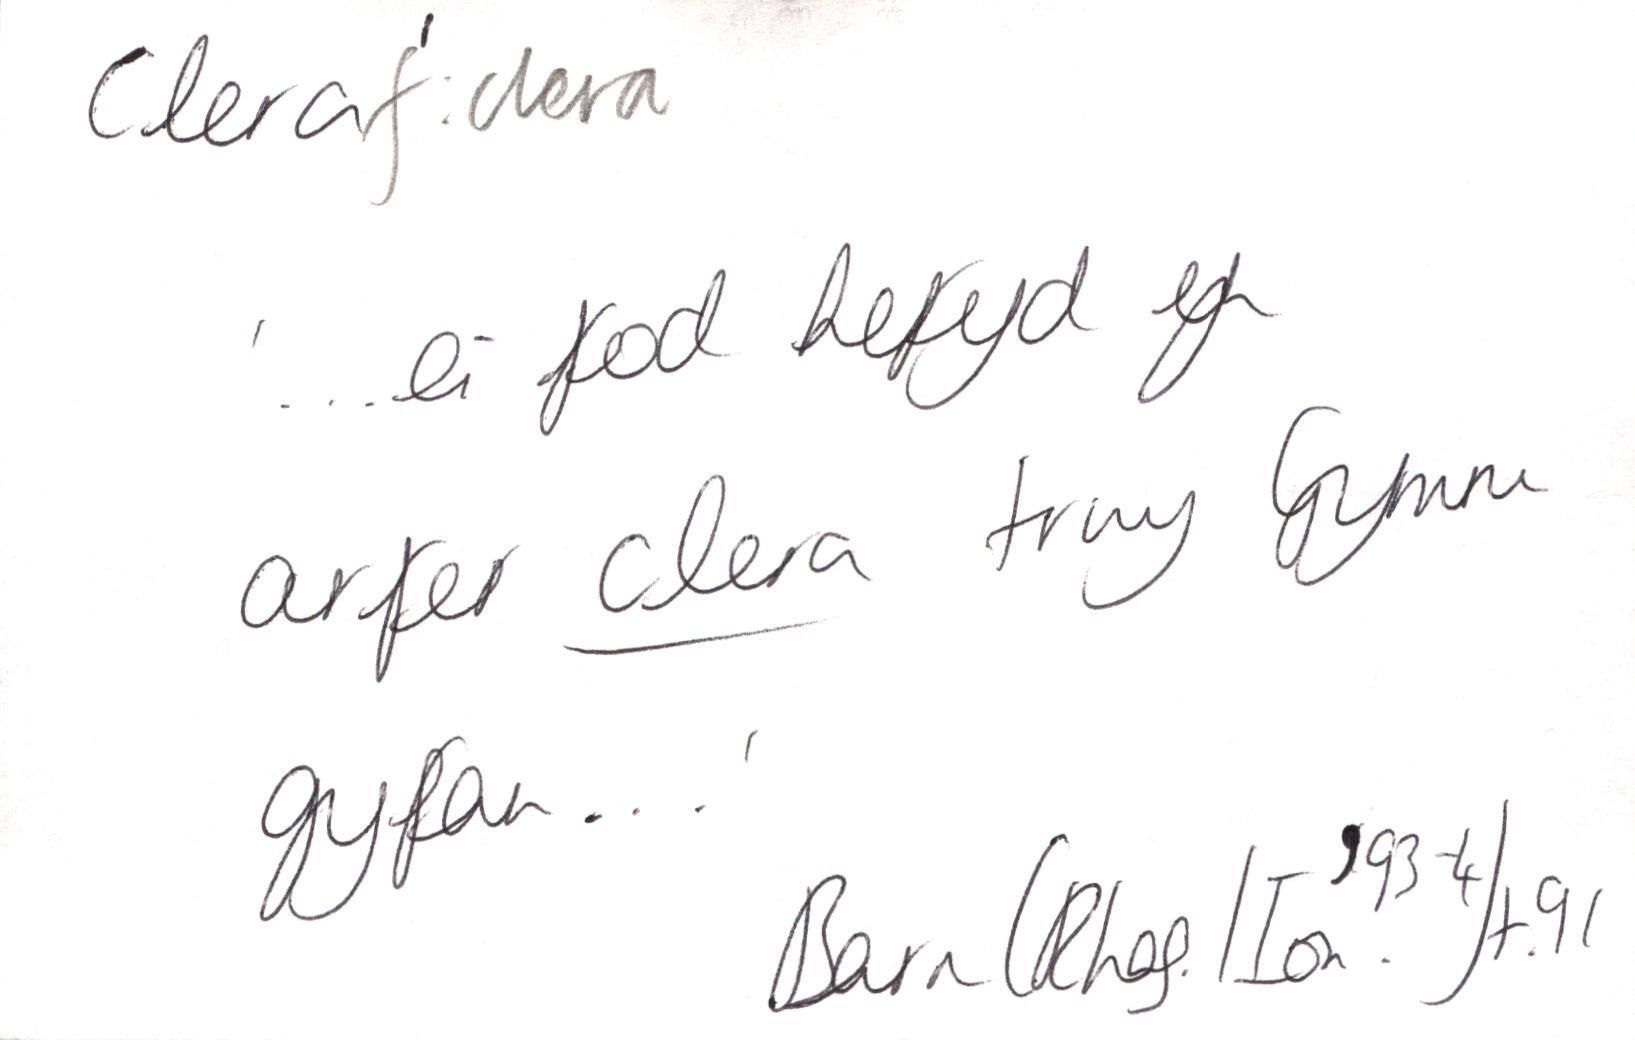 Cleraf¹: clera
'...ei fod hefyd yn
arfer clera trwy Gymru
gyfan...'
Barn (Rhag./Ion. '93-4) t.91